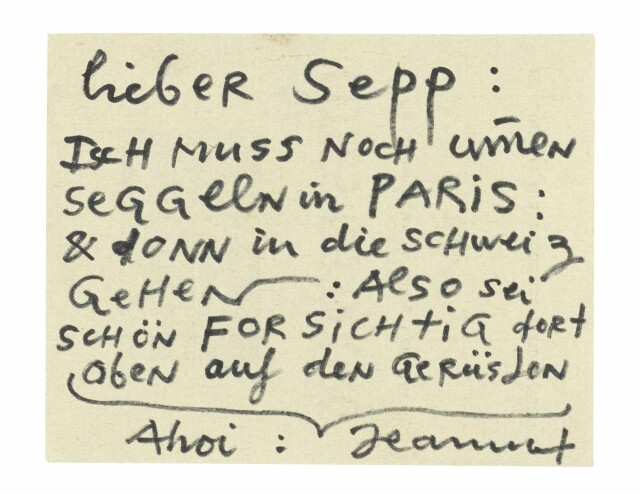 lieber Sepp :
Isch muss noch um̄en
seggeln in PARis :
& donn in die schweiz
Gehen : Also sei
schön FORSiCHtiG dort
oben auf den Gerüsden
Ahoi : Jeannot